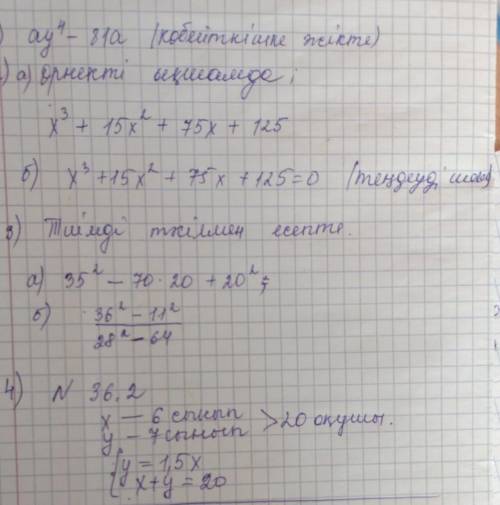 ) ay⁴ - 81a (көбейткішке жікте)
) а) Өрнекті ықшамда;
x³ + 15x² + 75x + 125
б) x³ + 15x² + 75x + 125 = 0 (теңдеуді шеш)
3) Тиімді тәсілмен есепте.
а) 35² - 70 · 20 + 20²;
б) 36² - 11² / 28² - 64
4) N 36.2
x — 6 сынып
y — 7 сынып > 20 оқушы.
{ y = 1,5x
x + y = 20